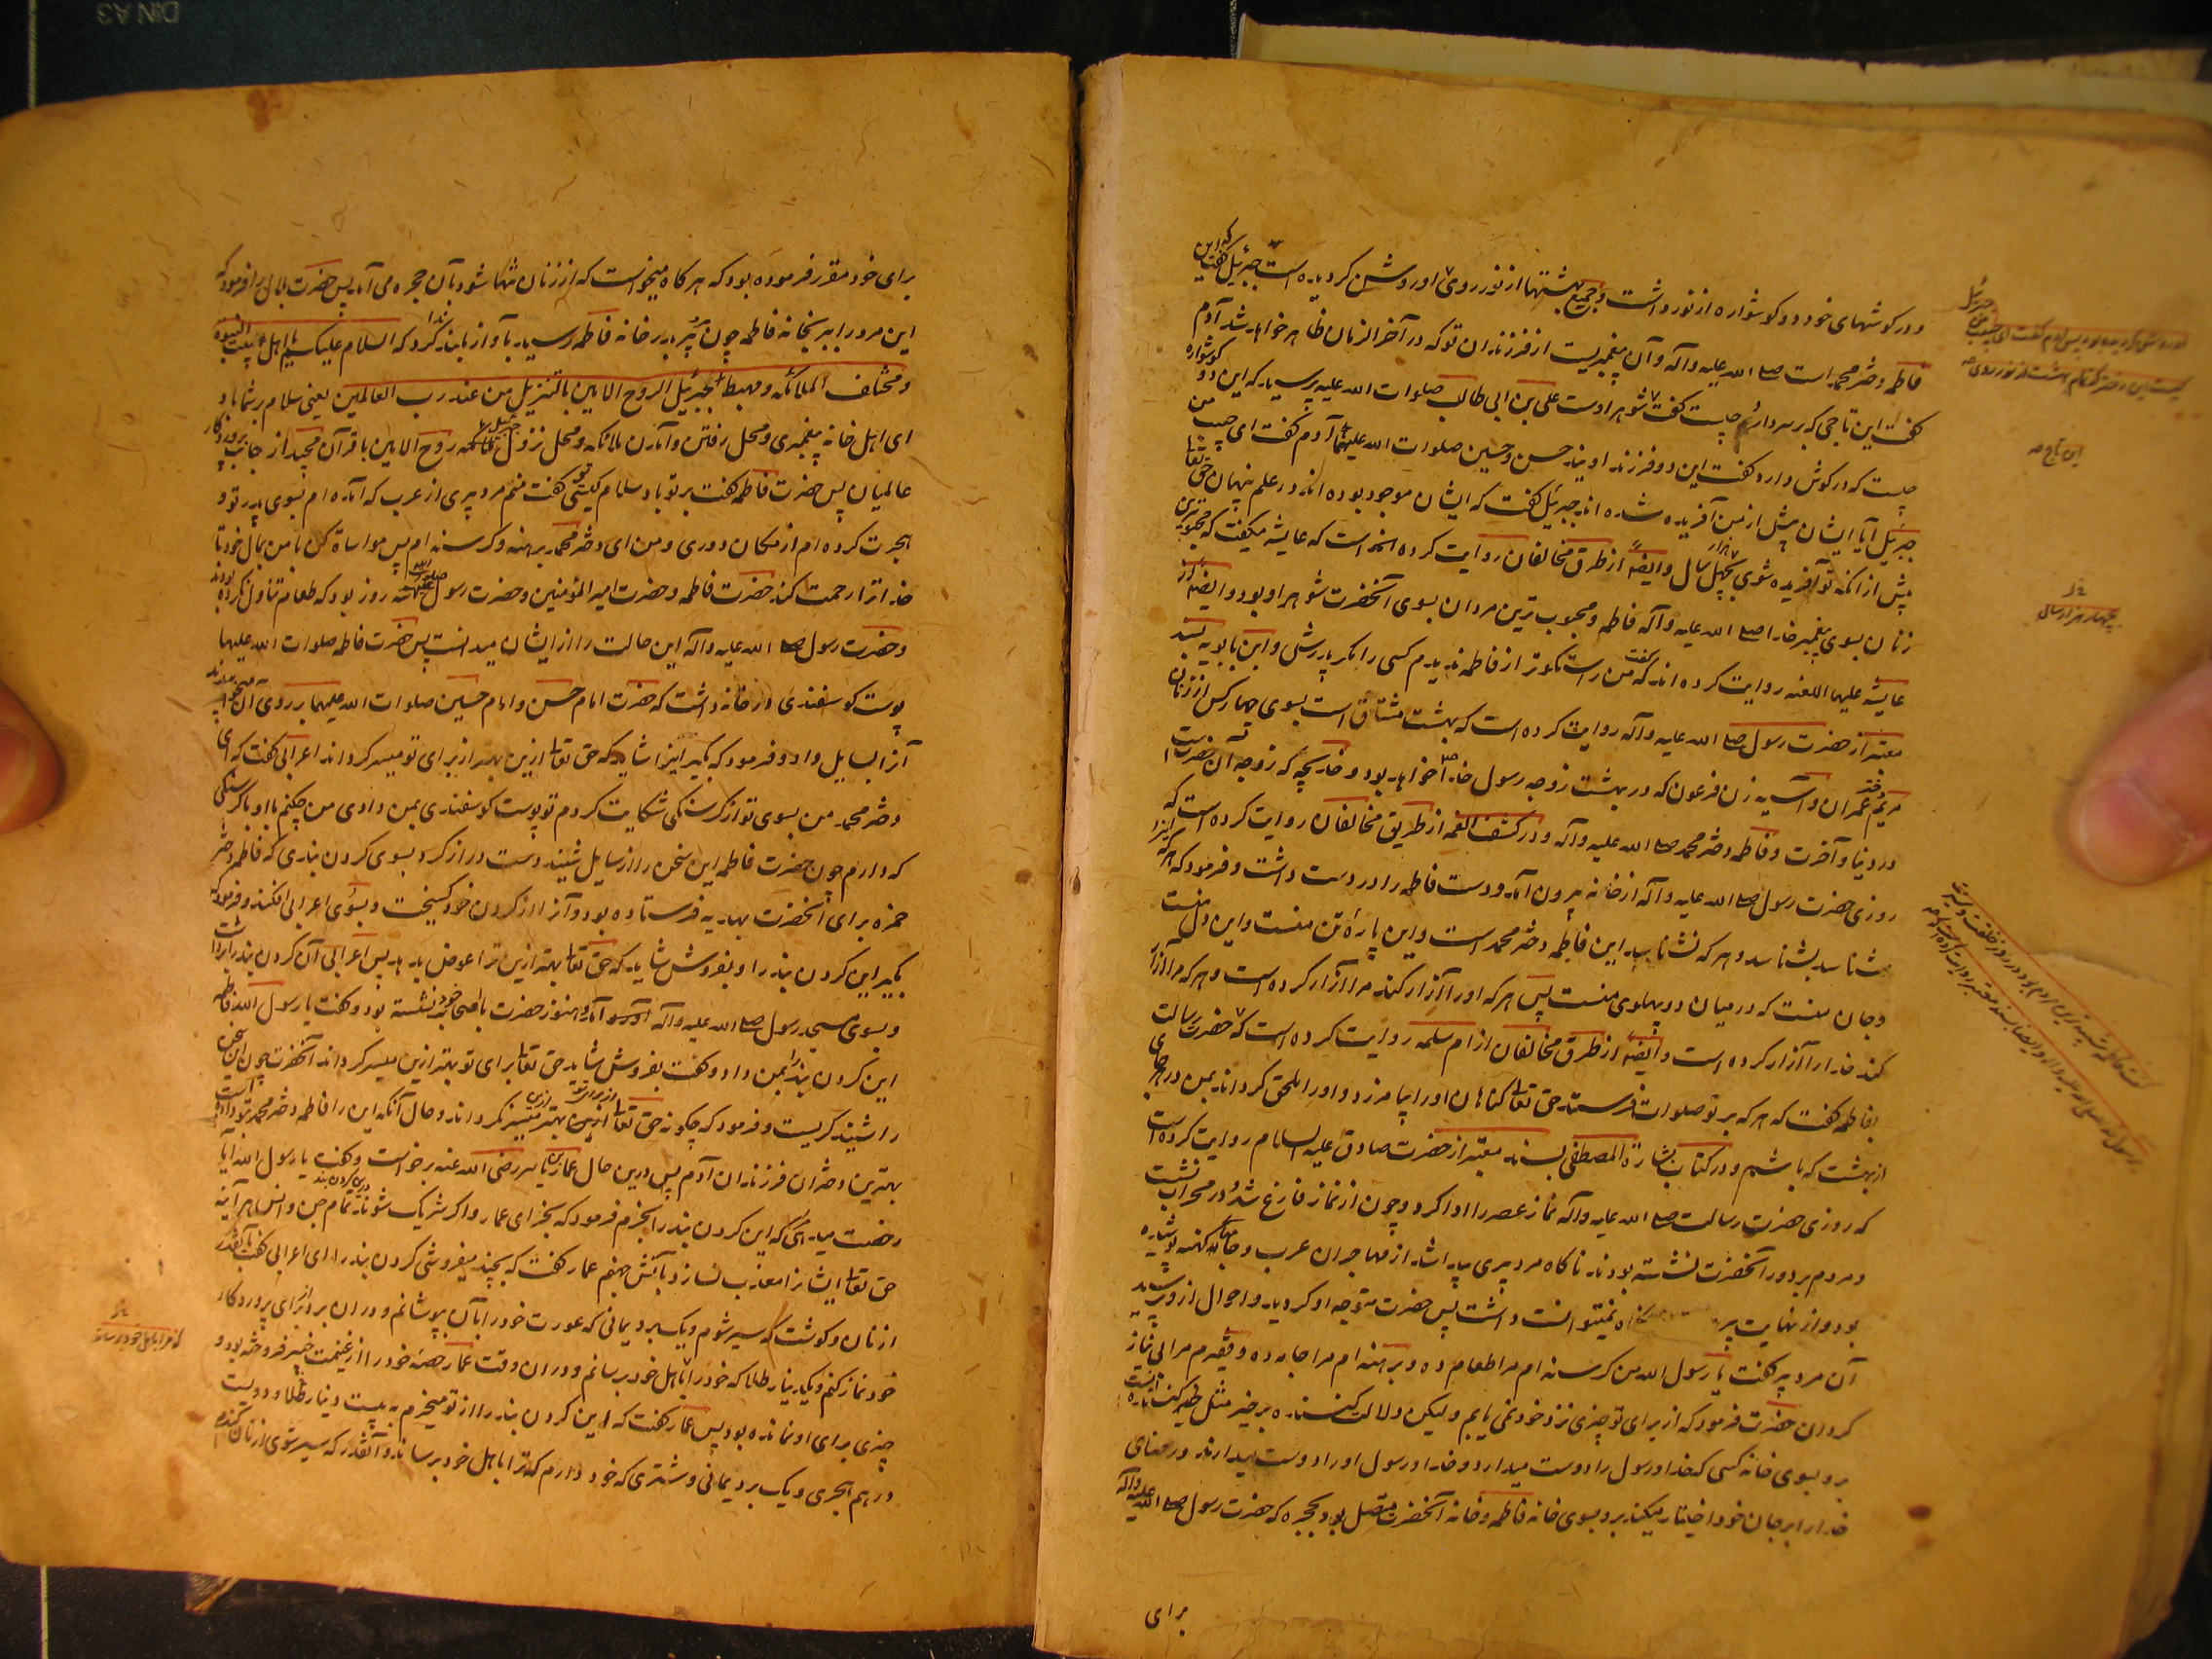 و در کوشهای خود دو کوشواره از نور داشت و جمیع بهشتها از نور روی او روشن کردیده است جبرئیل گفت که این
فاطمه دختر محمد است صلی الله علیه وآله وآن پیغمبریست از فرزندان تو که در آخر الزمان ظاهر خواهد شد آدم
گفت این تاجی که بر سر دارد چیست گفت شوهر اوست علی بن ابی طالب صلوات الله علیه پرسید که این دو کوشواره
چیست که در کوش دارد گفت این دو فرزند اویند حسن و حسین صلوات الله علیهما آدم گفت ای حبیب من
جبرئیل آیا ایشان پیش از من آفریده شده اند جبرئیل گفت که ایشان موجود بوده اند در علم پنهان حق تعا
پیش از آنکه تو آفریده شوی بچهل هزار سال وایضا از طرق مخالفان روایت کرده است که عایشه میکفت که محبوبترین
زنان بسوی پیغمبر خدا صلی الله علیه وآله فاطمه و محبوب ترین مردان بسوی آنحضرت شوهر او بود وایضا از
عایشه علیها اللعنه روایت کرده اند که گفت من راست کوتر از فاطمه ندیدم کسی را مکر پدرش و ابن بابویه بسند
معتبر از حضرت رسول صلی الله علیه وآله روایت کرده است که بهشت مشتاق است بسوی چهار کس از زنان
مریم دختر عمران و آسیه زن فرعون که در بهشت زوجه رسول خدا خواهد بود و خدیجه که زوجه آن حضرتست
در دنیا و آخرت و فاطمه دختر محمد صلی الله علیه وآله و در کشف الغمه از طریق مخالفان روایت کرده است که
روزی حضرت رسول صلی الله علیه وآله از خانه بیرون آمد و دست فاطمه را در دست داشت و فرمود که هر که اینرا
شناسد بشناسد و هر که نشناسد این فاطمه دختر محمد است و این پارهٔ تن منست و این دل منست
و جان منست که در میان دو پهلوی منست پس هر که او را آزار کند مرا آزار کرده است و هر که مرا آزار
کند خدا را آزار کرده است وایضا از طرق مخالفان از ام سلمه روایت کرده است که حضرت رسالت
بفاطمه گفت که هر که بر تو صلوات فرستد حق تعا کناهان او را بیامرزد و او را ملحق کرداند بمن در هر جای
از بهشت که باشم و در کتاب بشارة المصطفی بسند معتبر از حضرت صادق علیه السلام روایت کرده است
که روزی حضرت رسالت صلی الله علیه وآله نماز عصر را ادا کرد و چون از نماز فارغ شد در محراب نشست
و مردم بر دور آنحضرت نشسته بودند ناکاه مرد پیری پیدا شد از مهاجران عرب و جامهای کهنه پوشیده
بود و از نهایت پیری نگاه نمیتوانست داشت پس حضرت متوجه او کردید و احوال از و پرسید
آن مرد پیر گفت یا رسول الله من کرسنه ام مرا طعام ده و برهنه ام مرا جامه ده و فقیرم مرا بی نیاز
کردان حضرت فرمود که از برای تو چیزی نزد خود نمی یابم ولیکن دلالت کننده بر خیر مثل کننده آنست
برو بسوی خانه کسی که خدا و رسول را دوست میدارد و خدا و رسول او را دوست میدارند و رضای
خدا را بر جان خود اختیار میکند برو بسوی خانه فاطمه و خانه آنحضرت متصل بود بحجره که حضرت رسول صلی الله علیه وآله
برای
این تاج
بچهار هزار سال
برای خود مقرر فرموده بود که هر کاه میخواست که از زنان تنها شود بآن حجره می آمد پس حضرت بلال را فرمود که
این مرد را ببر بخانه فاطمه چون پیر بدر خانه فاطمه رسید بآواز بلند ندا کرد که السلام علیکم یا اهل بیت النبوه
و مختلف الملائکه و مهبط جبرئیل الروح الامین بالتنزیل من عند رب العالمین یعنی سلام بر شما باد
ای اهل خانه پیغمبری و محل رفتن و آمدن ملائکه و محل نزول جبرئیل روح الامین با قرآن مجید از جانب پروردکار
عالمیان پس حضرت فاطمه گفت بر تو باد سلام کیستی تو گفت منم مرد پیری از عرب که آمده ام بسوی پدر تو و
هجرت کرده ام از مکان دوری و من ای دختر محمد برهنه و کرسنه ام پس مواساة کن با من بمال خود تا
خدا ترا رحمت کند حضرت فاطمه و حضرت امیر المؤمنین و حضرت رسول سه روز بود که طعام تناول نکرده بودند
و حضرت رسول صلی الله علیه وآله این حالت را از ایشان میدانست پس حضرت فاطمه صلوات الله علیها
پوست کوسفندی در خانه داشت که حضرت امام حسن و امام حسین صلوات الله علیهما بر روی آن میخوابیدند
آنرا بسایل داد و فرمود که بکیر اینرا شاید که حق تعا ازین بهتر از برای تو میسر کرداند اعرابی گفت که ای
دختر محمد من بسوی تو از کرسنکی شکایت کردم تو پوست کوسفندی بمن دادی من چکنم با او با کرسنکی
که دارم چون حضرت فاطمه این سخن را از سایل شنید دست دراز کرد بسوی کردن بندی که فاطمه دختر
حمزه برای آنحضرت بهدیه فرستاده بود و آنرا از کردن خود کسیخت و بسوی اعرابی افکند و فرمود که
بکیر این کردن بند را و بفروش شاید که حق تعا بهتر ازین ترا عوض بدهد پس اعرابی آن کردن بند را برداشت
و بسوی مسجد رسول صلی الله علیه وآله آمد و هنوز حضرت با اصحاب خود نشسته بود و گفت یا رسول الله فاطمه
این کردن بند را بمن داد و گفت بفروش شاید حق تعا برای تو بهتر ازین میسر کرداند آنحضرت چون این سخن
را شنید کریست و فرمود که چکونه حق تعا از برای تو بهتر ازین میسر نکرداند و حال آنکه این را فاطمه دختر محمد بتو داده است
بهترین دختران فرزندان آدم پس درین حال عمار بن یاسر رضی الله عنه برخواست و گفت یا رسول الله آیا
رخصت میدهی که این کردن بند را بخرم فرمود که بخر ای عمار و اکر شریک شوند درین کردن بند تمام جن و انس هر آینه
حق تعا ایشانرا معذب نسازد بآتش جهنم عمار گفت که بچند میفروشی کردن بند را ای اعرابی گفت بآنقدر
از نان و کوشت که سیر شوم و یک برد یمانی که عورت خود را بآن بپوشانم و در آن برد از برای پروردکار
خود نماز کنم و یک دینار طلا که خود را باهل خود برسانم و در ان وقت عمار حصه خود را از غنیمت خیبر فروخته بود و
چیزی برای او نمانده بود پس عمار گفت که این کردن بند را از تو میخرم به بیست دینار طلا و دویست
درهم هجری و یک برد یمانی و شتری که خود دارم که ترا باهل خود برساند و آنقدر که سیر شوی از نان کندم
که مرا باهل خود رساند